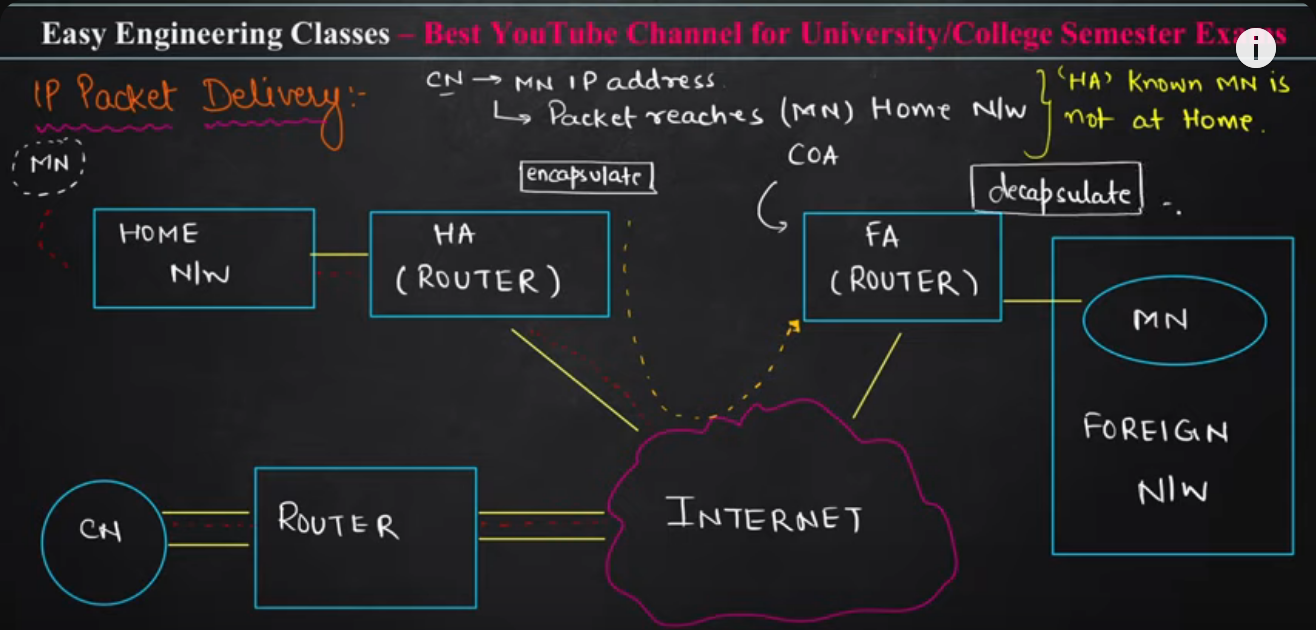 Easy Engineering Classes – Best YouTube Channel for University/College Semester Exams
i
IP Packet Delivery:-
CN → MN IP address.
↳ Packet reaches (MN) Home N/W
'HA' Known MN is
not at Home.
MN
encapsulate
COA
decapsulate
HOME
N/W
HA
(ROUTER)
FA
(ROUTER)
MN
FOREIGN
N/W
CN
ROUTER
INTERNET